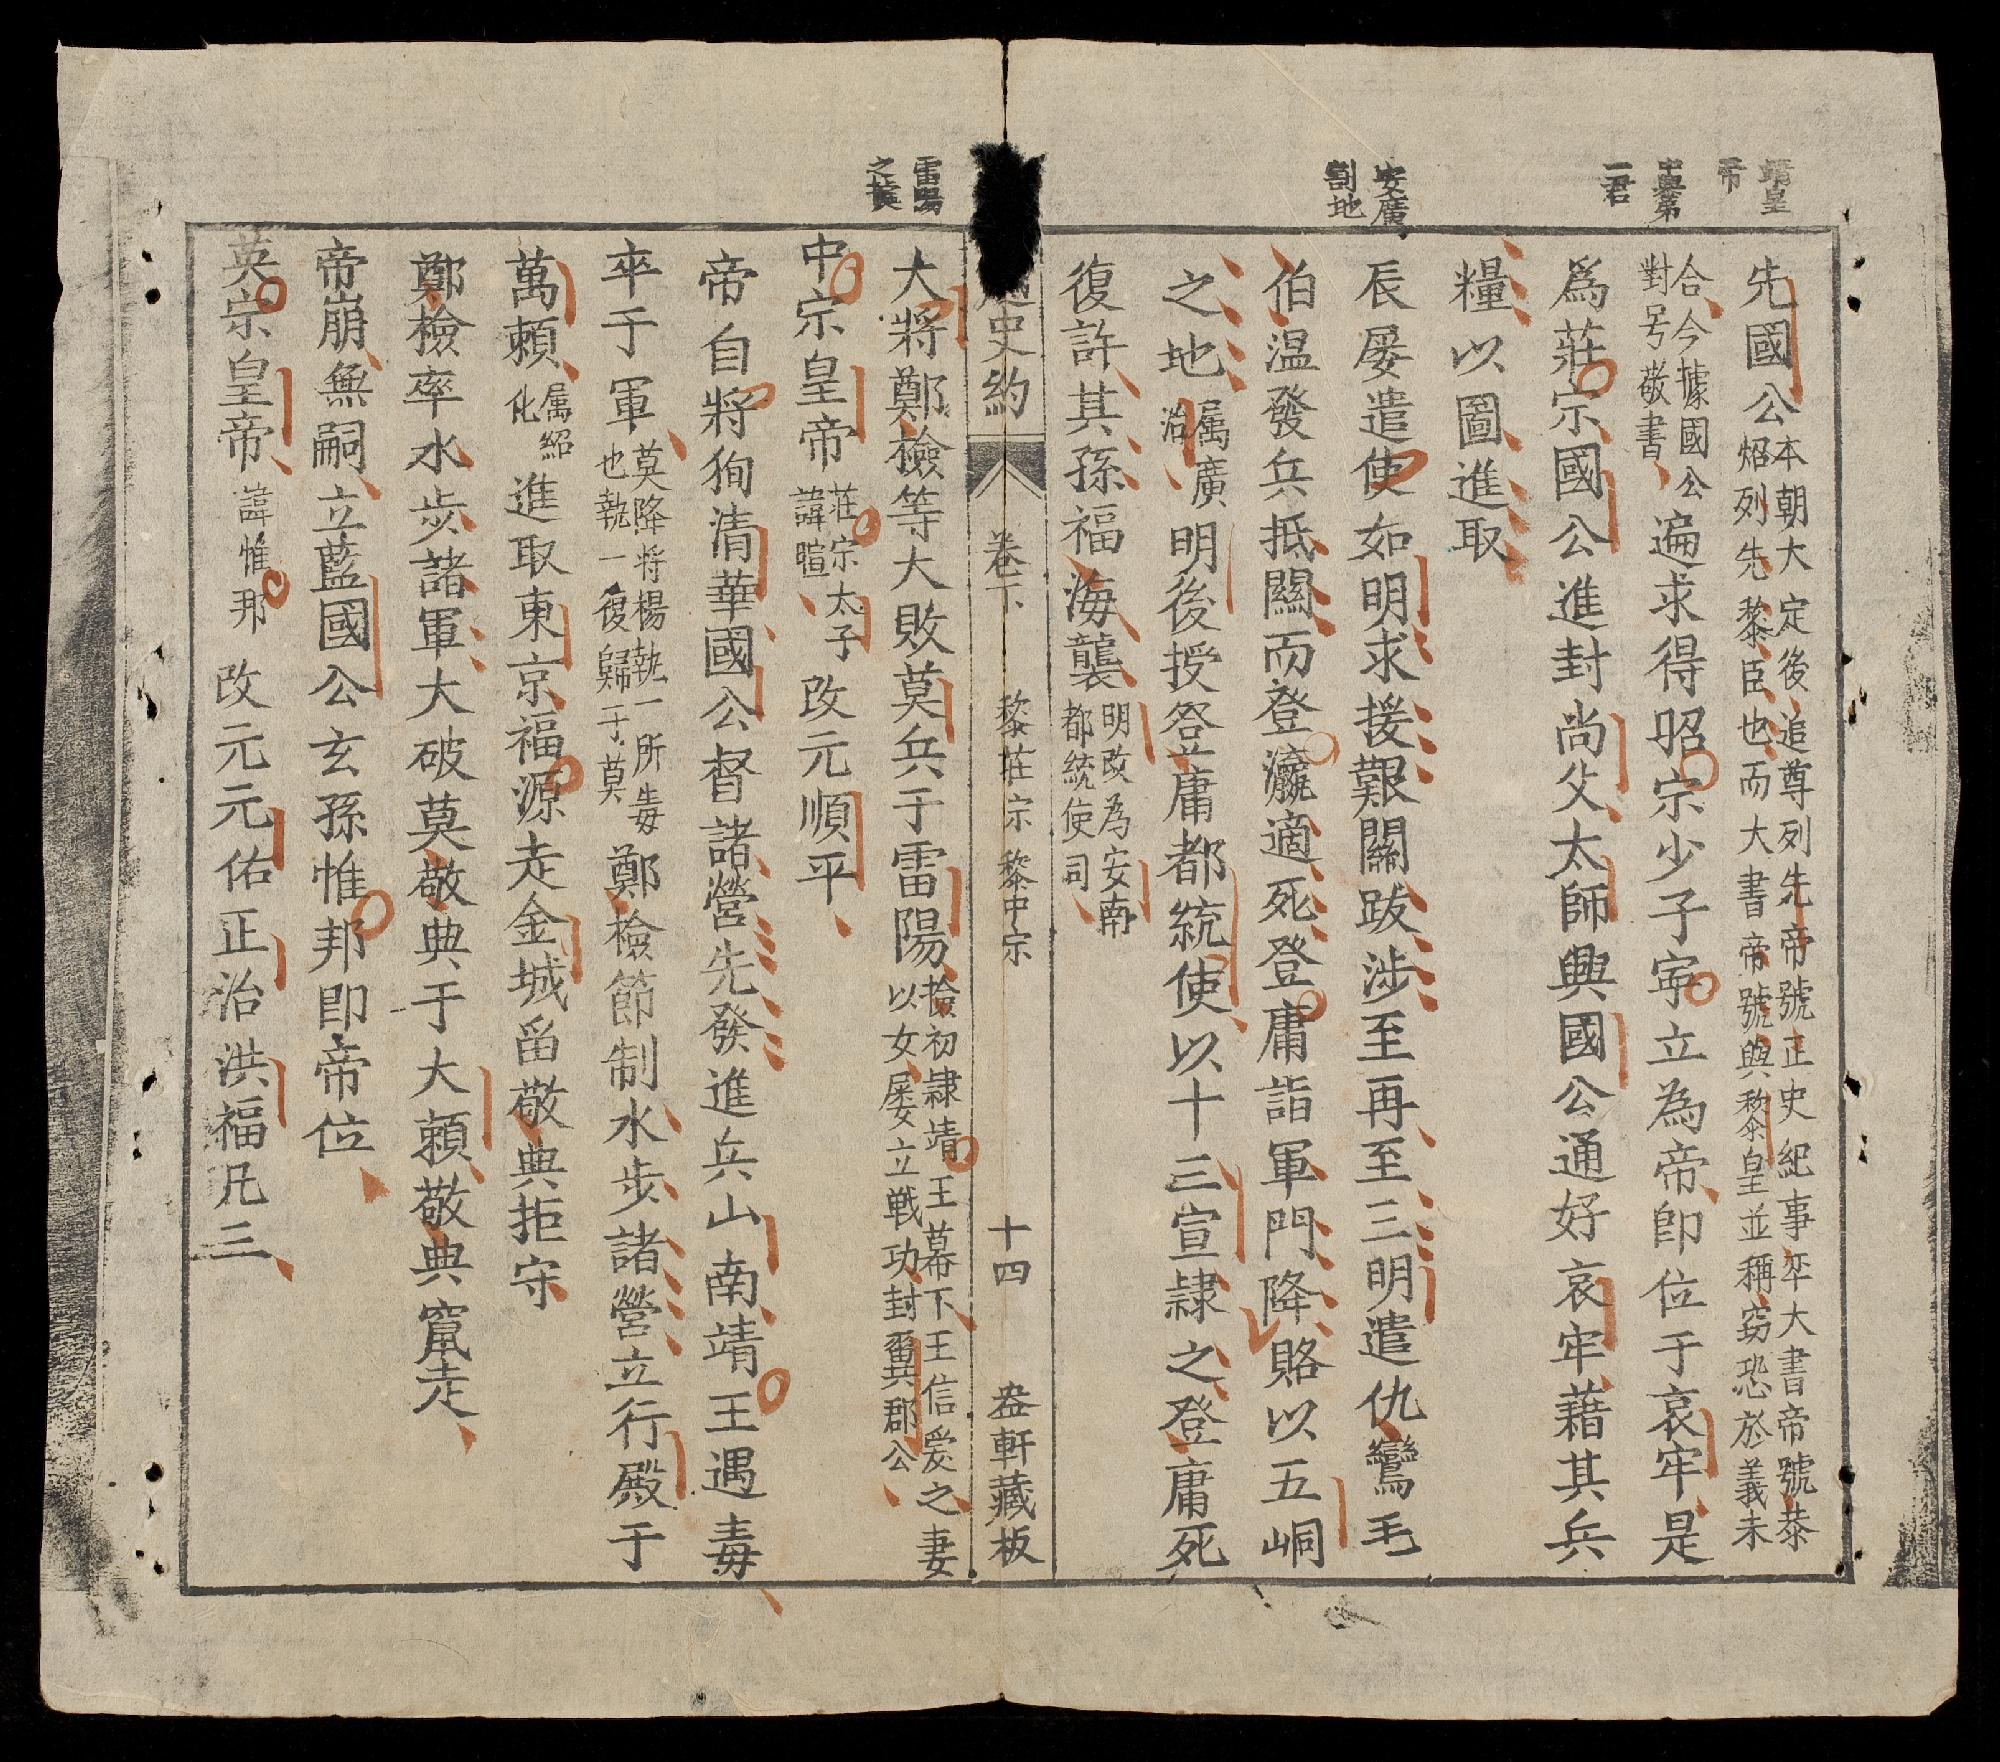 靖皇
帝
二君
安廣
割地
先國公本朝大定後追尊列先帝號正史紀事卒大書帝號恭
炤列先黎臣也而大書帝號與黎皇並稱竊恐於義未
合今據國公
對号敬書遍求得昭宗少子寧立為帝即位于哀牢是
爲莊宗國公進封尚父太師興國公通好哀牢藉其兵
糧以圖進取
辰屡遣使如明求援艱關跋涉至再至三明遣仇鸞毛
伯温發兵抵關而登瀛適死登庸詣軍門降賂以五峒
之地属廣
治明後授登庸都統使以十三宣隷之登庸死
復許其孫福海襲明改為安南
都統使司
史約 卷下 黎莊宗 黎中宗 十四 盎軒藏板
雷陽
之
大將鄭檢等大敗莫兵于雷陽檢初隷靖王幕下王信爱之妻
以女屡立戦功封翼郡公
中宗皇帝莊宗太子
諱暄改元順平
帝自將狥清華國公督諸營先發進兵山南靖王遇毒
卒于軍莫降将楊執一所毒
也執一復歸于莫鄭檢節制水步諸營立行殿于
萬頼属紹
化進取東京福源走金城畱敬典拒守
鄭檢率水步諸軍大破莫敬典于大頼敬典竄走
帝崩無嗣立藍國公玄孫惟邦即帝位
英宗皇帝諱惟邦改元元佑正治洪福凡三